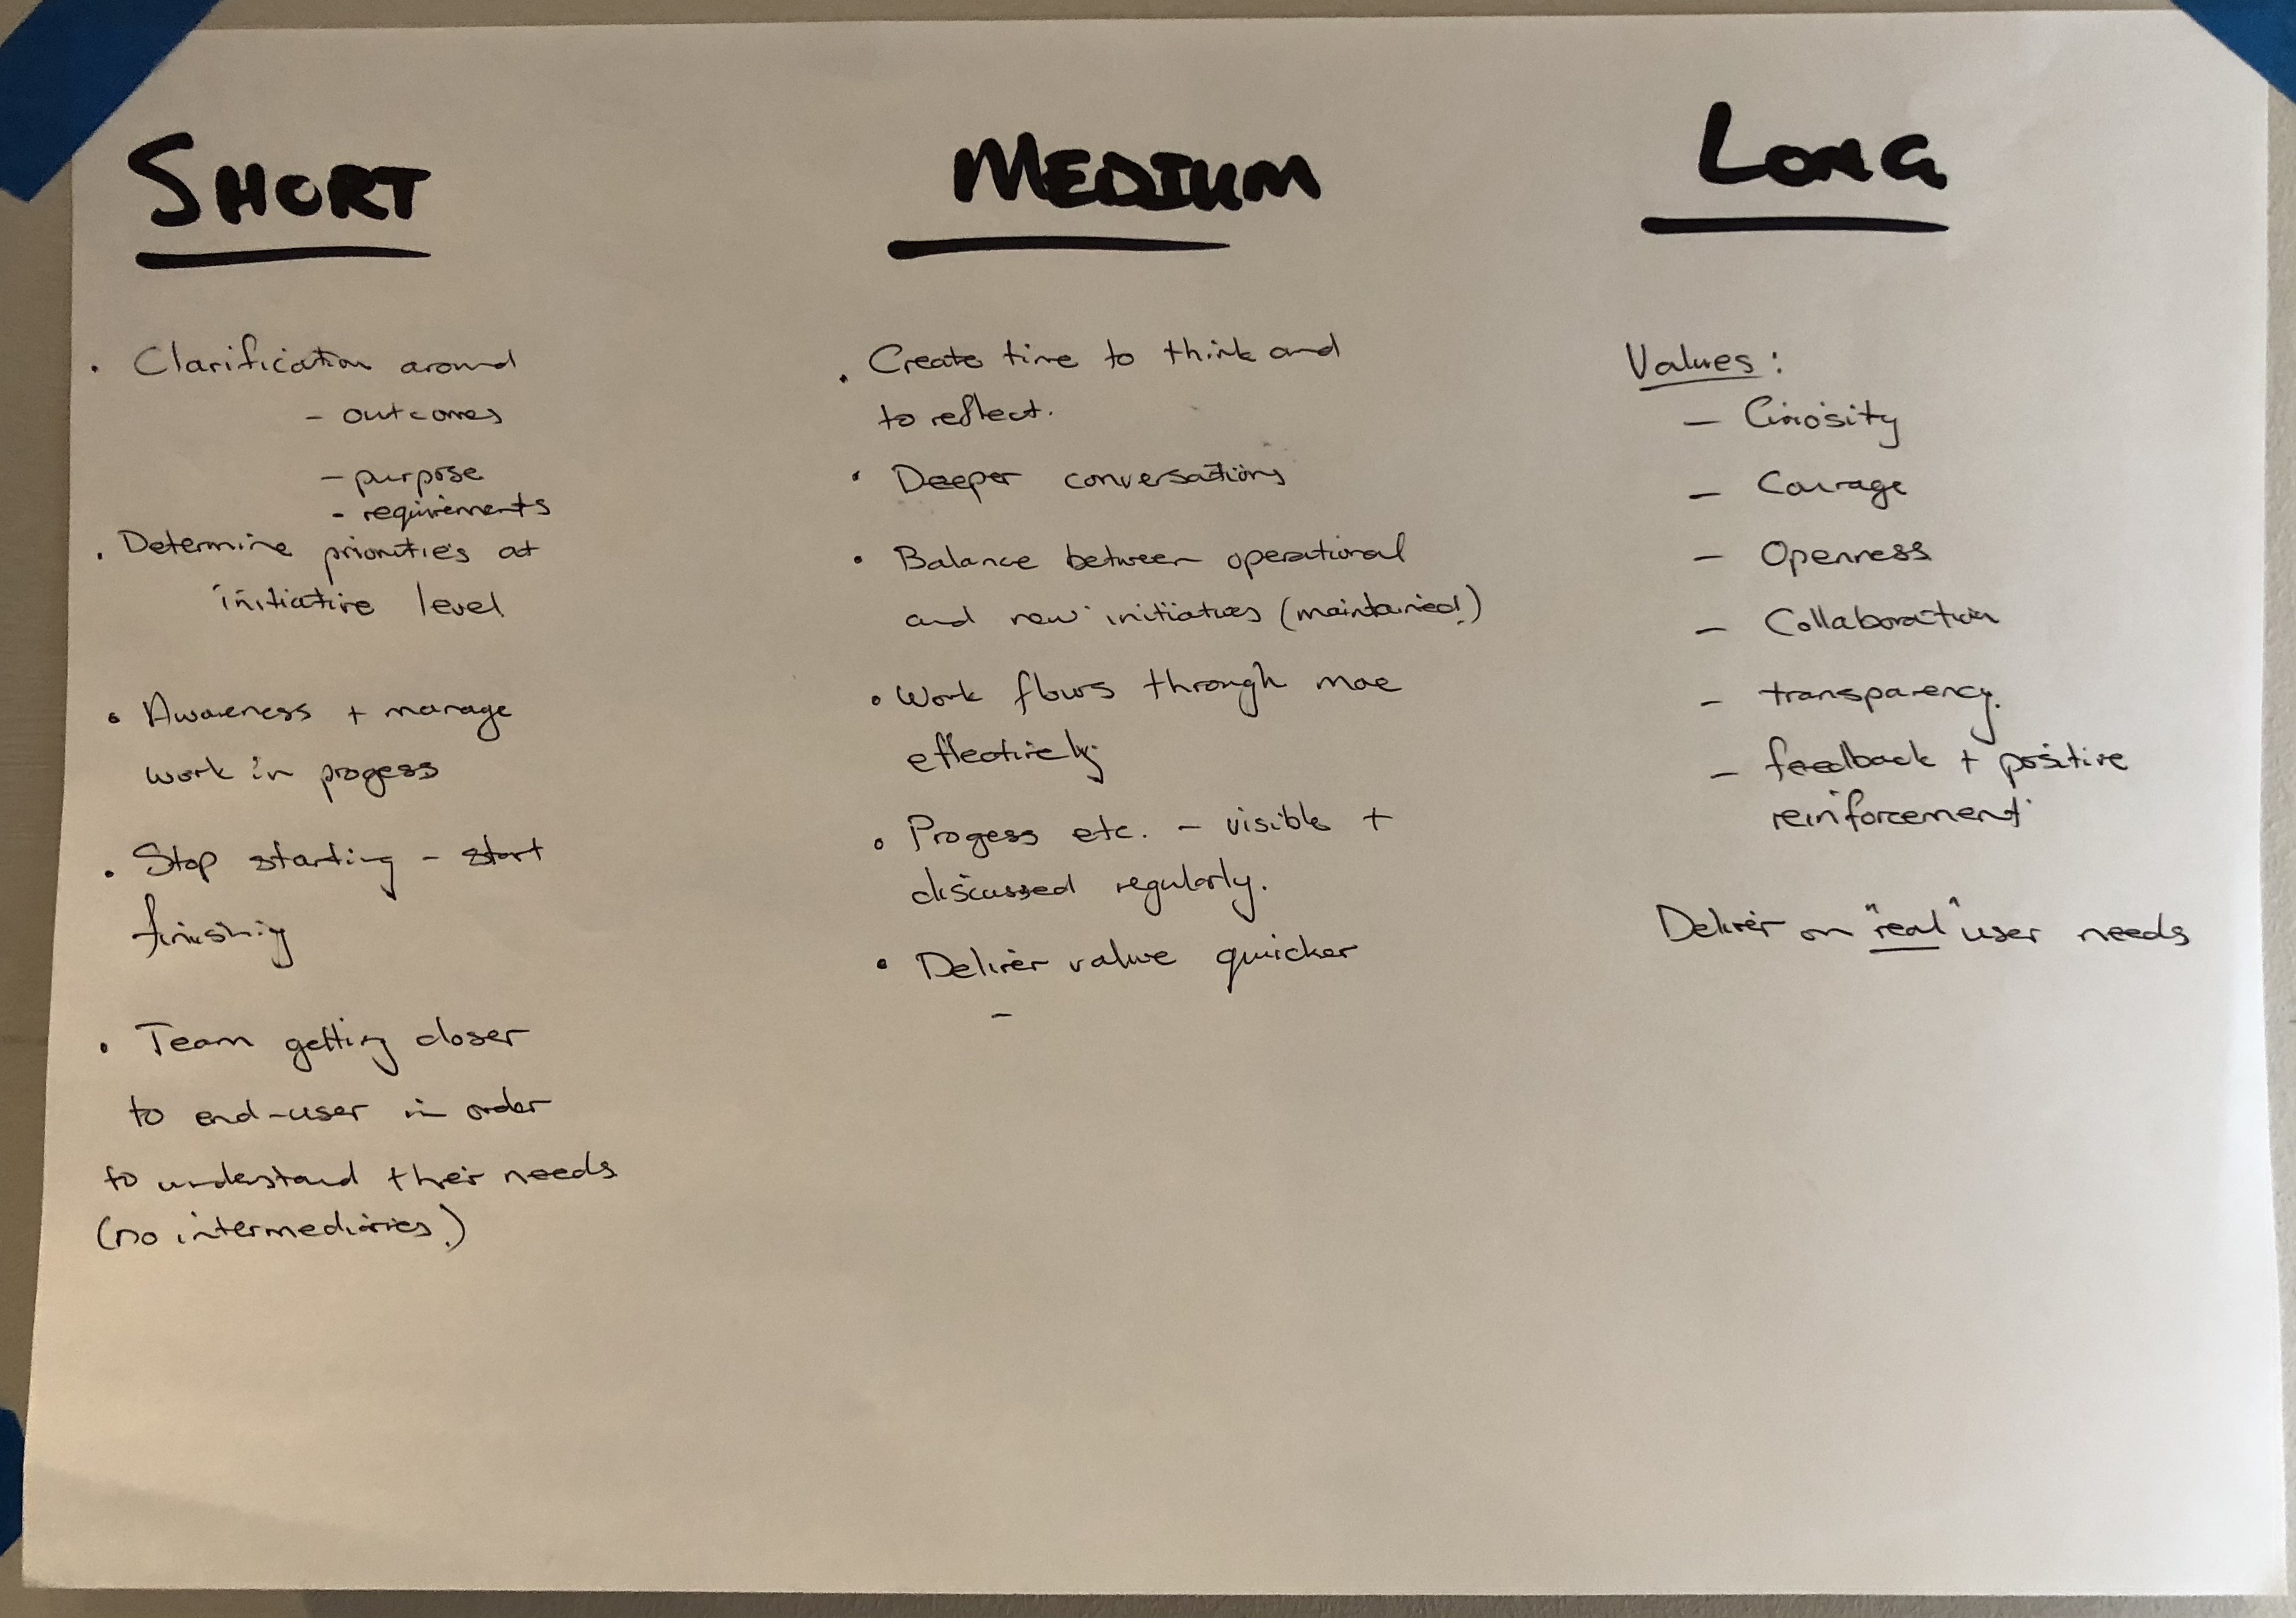 SHORT
. Clarification around
- outcomes
- purpose
- requirements
. Determine priorities at
initiative level
• Awareness + manage
work in progess
. Stop starting - start
finishing
• Team getting closer
to end-user in order
to understand their needs
(no intermediaries!)
MEDIUM
. Create time to think and
to reflect.
• Deeper conversations
• Balance between operational
and new initiatives (maintained!)
• Work flows through moe
effectively
• Progess etc. - visible +
discussed regularly.
• Deliver value quicker
-
LONG
Values:
- Curiosity
- Courage
- Openness
- Collaboration
- transparency.
- feedback + positive
reinforcement
Deliver on "real" user needs